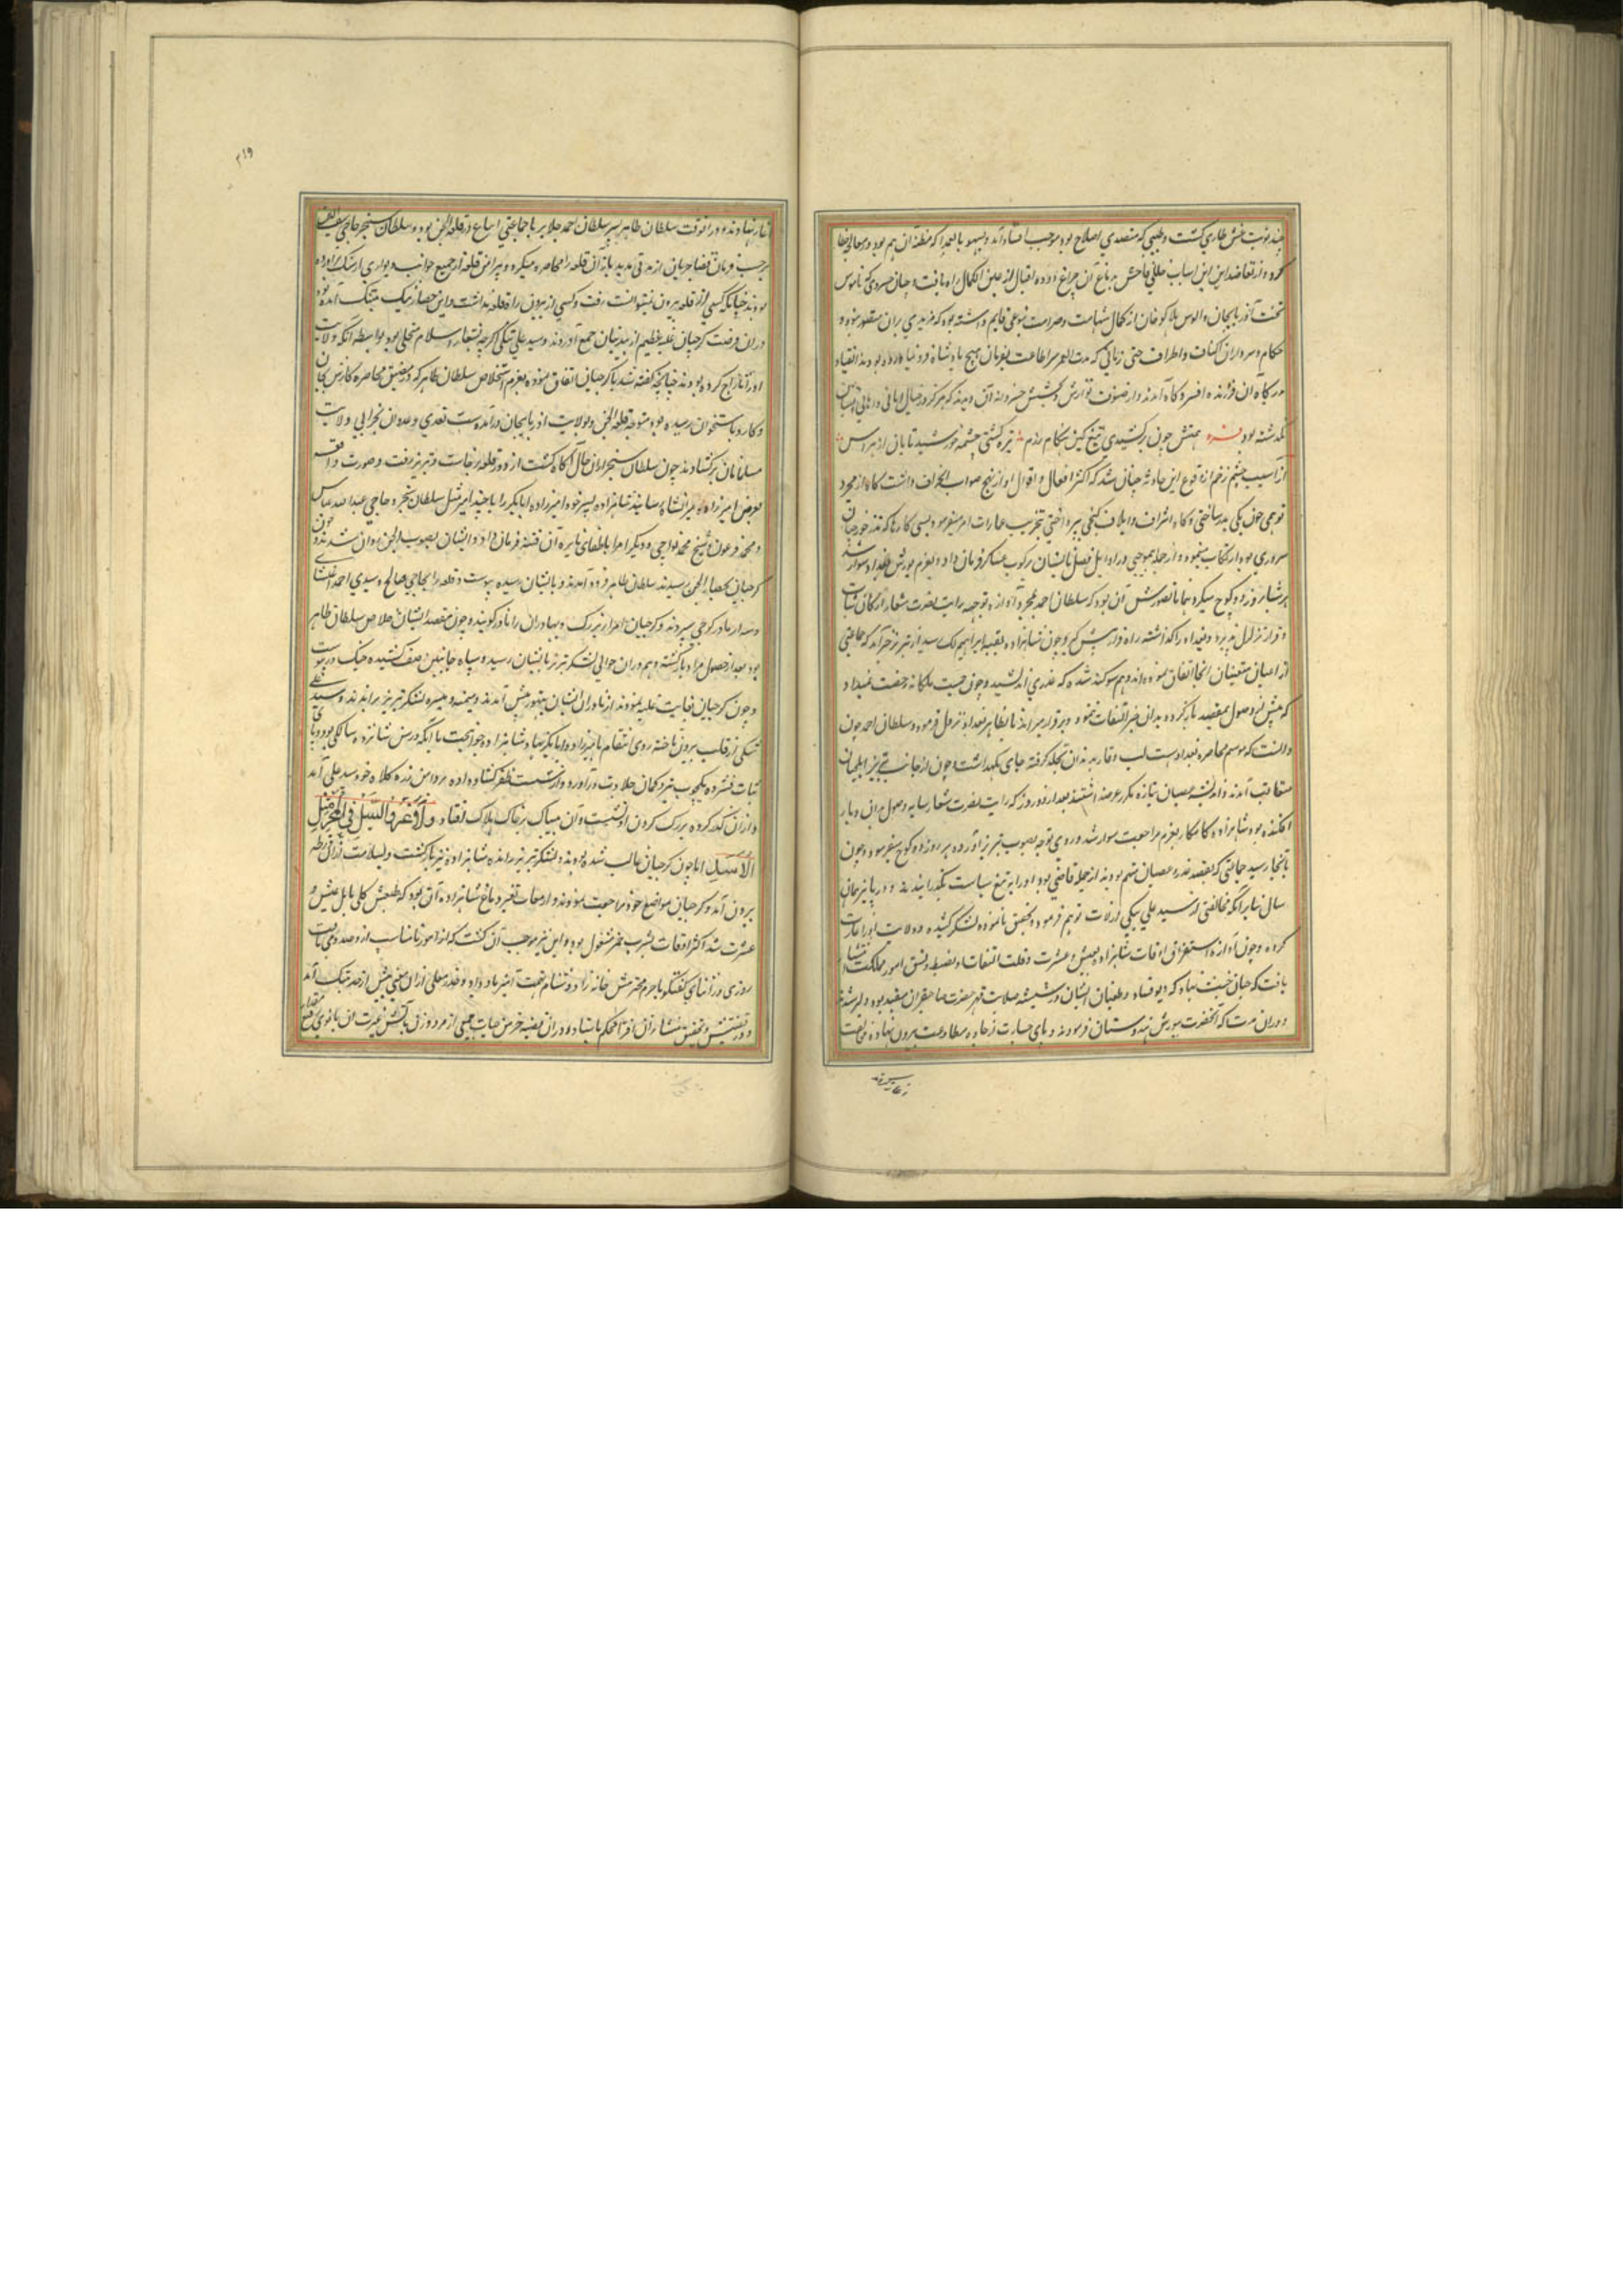 چند نوبت غش طاری گشت و طبیبی که متصدی اصلاح بود موجب افساد آمد و بسهو یا بعمدا که مظنه آن هم بود در معالجه خطا
کرد و از تعاضد این اسباب خللی فاحش بدماغ آن چراغ دوده اقبال از عین الکمال راه یافت و چنان خسروی که ناموس
تخت آذربایجان و الوس هلاکو خان از کمال شهامت و صرامت بنوعی قایم داشته بود که مزیدی بران متصور نبود و
حکام و سرداران اکناف و اطراف حتی زمانی که مدت العمر سر اطاعت بفرمان هیچ پادشاه فرو نیاورده بودند انقیاد
درگاه آن فرزنده افسر و گاه آمدند و از صنوف نوازش و بخشش خسروانه آن دیدند که هرگز در خیال امانی و امال ایشان
نگذشته بود بهمتش چون برکشیدی تیغ کین هنگام رزم تیره گشتی چشمه خورشید تابان از هراس
از آسیب چشم زخم از وقوع این حادثه چنان شد که اکثر افعال و اقوال او از نهج صواب انحراف داشت گاه از مجرد
توهمی خون یکی بدر ساختی و گاه باشراف و اتلاف گنجی بپرداختی تخریب عمارات امر میفرمود و بسی کارها که نه درخور چنان
سروری بود ارتکاب مینمود و از جمله بموجبی در اوایل فصل تابستان برکوب عساکر فرمان داد و بعزم یورش بغداد سوار شد
هر شبانروز دو کوچ میکرد همانا تصورش آن بود که سلطان احمد بمجرد آوازه توجه رایت نصرت شعار ارکان ثبات
و قرار تزلزل پذیرد و بغداد را گذاشته راه فرار پیش گیرد چون شاهزاده بقبه ابراهیم لک رسید از تبریز خبر آمد که جماعتی
از اعیان متعینان آنجا اتفاق نموده‌اند و هم سوگند شده که غدری اندیشند و چون حمیت ملکانه رخصت نمیداد
که پیش از وصول بمقصد بازگردد بدان خبر التفات ننمود و برقرار میراند تا بظاهر بغداد نزول فرمود و سلطان احمد چون
دانست که موسم محاصره بغداد نیست لب وقار بدندان تجلد گرفته جای نگهداشت و چون از جانب تبریز ایلچیان
متعاقب آمدند و اندیشه عصیان بتازه مکرر عرضه داشتند بعد از دو روز که رایت نصرت شعار سایه وصول بران دیار
افکنده بود شاهزاده کامکار بعزم مراجعت سوار شد و روی توجه بصوب تبریز آورده هر روز دو کوچ میفرمود و چون
بآنجا رسید جماعتی که بقصد غدر و عصیان متهم بودند از جمله قاضی بود او را به تیغ سیاست بگذرانیدند و در پاییز همان
سال بنابر آنکه مخالفتی از سید علی شکی ارلات توهم فرمود و تحقیق نانموده لشکر کشیده و ولایت او را غارت
کرده و چون آوازه استغراق اوقات شاهزاده بعیش و عشرت و قلت التفات او بضبط و نسق امور مملکت انتشار
یافت گرجیان خبیث نهاد که دیو فساد و طغیان ایشان در شیشه صلابت قهر حضرت صاحبقران مقید بود دلیر شدند
و دران مدت که آنحضرت یورش هندوستان فرمود و پای جسارت از جاده مطاوعت بیرون نهاده مخالفت
۳۱۹
آغاز نهادند و دران وقت سلطان طاهر پسر سلطان احمد جلایر با جماعتی اتباع در قلعه النجق بود و سلطان سنجر حاجی سیف الدین
برحسب فرمان قضا جریان از مدتی مدید باز آن قلعه را محاصره میکرد و پیرامن قلعه از جمیع جوانب دیواری از سنگ برآورده
بودند چنانکه کسی از قلعه بیرون نمیتوانست رفت و کسی از بیرون راه بقلعه نداشت و این حصار نیک بتنگ آمده بود
دران فرصت گرجیان غلبه عظیم از بیدینان جمع آوردند و سید علی شکی اگرچه بشعار اسلام متحلی بود بواسطه آنکه ولایت
او را تاراج کرده بودند چنانچه گفته شد با گرجیان اتفاق نموده بعزم استخلاص سلطان طاهر که در مضیق محاصره کارش بجان
و کارد باستخوان رسیده بود متوجه قلعه النجق و بولایت آذربایجان درآمده دست تعدی و عدوان بخرابی ولایت
مسلمانان برگشادند چون سلطان سنجر ازان حال آگاه گشت از دور قلعه برخاست و بتبریز رفت و صورت واقعه
بعرض امیرزاده میرانشاه رسانید شاهزاده پسر خود امیرزاده ابابکر را با چند امیر مثل سلطان سنجر و حاجی عبدالله عباس
و محمد فرعون و شیخ محمد تواجی و دیگر امرا باطفای نایره آن فتنه فرمان داد و ایشان بصوب النجق روان شدند و چون
گرجیان بحصار النجق رسیدند سلطان طاهر فرود آمدند و بایشان رسیده پیوست و قلعه را بحاجی صالح و سیدی احمد اغلشای
و سه آزناور گرجی سپردند و گرجیان امراء بزرگ و بهادران را آزناور گویند و چون مقصد ایشان خلاص سلطان طاهر
بود بعد از حصول مراد بازگشته و هم دران حوالی لشکر تبریز بایشان رسید و سپاه جانبین صف کشیده جنگ درپیوست
و چون گرجیان بغایت غلبه نمودند آزناوران ایشان بتهور پیش آمدند و میمنه و میسره لشکر تبریز براندند و سید علی
شکی از قلب بیرون تاخته روی انتقام بامیرزاده ابابکر نهاد و شاهزاده جوانبخت با آنکه در سن شانزده سالگی بود پای
ثبات فشرده یکچوب تیر در کمان جلادت درآورد و از شست ظفر گشاد داده بر دامن زره کلاه خود سید علی آمد
و ازان گذر کرده بر رک گردن او نشست و آن بیباک بر خاک هلاک افتاد و لا غرو اللیل فی الحرب
الاسل اما چون گرجیان غالب شده بودند و لشکر تبریز رانده شاهزاده نیز بازگشت و بسلامت ازان ورطه
بیرون آمد و گرجیان بمواضع خود مراجعت نمودند و از موجبات تغیر دماغ شاهزاده آن بود که طبعش کلی مایل عیش و
عشرت شد اکثر اوقات بشرب خمر مشغول بود و این نیز موجب آن گشت که از امور نامناسب ازو صدور می‌یافت
روزی در اثنای گفتگو با حرم محترمش خانزاده دشنام تهمت آمیز باو داد و خدر معلی ازان معنی بیش از حد بتنگ آمد
و در تفتیش و تحقیق منشاء آن افترا محکم بایستاد و دران قضیه خرمن حیات جمعی از مرد و زن بآتش غیرت آن بانوی